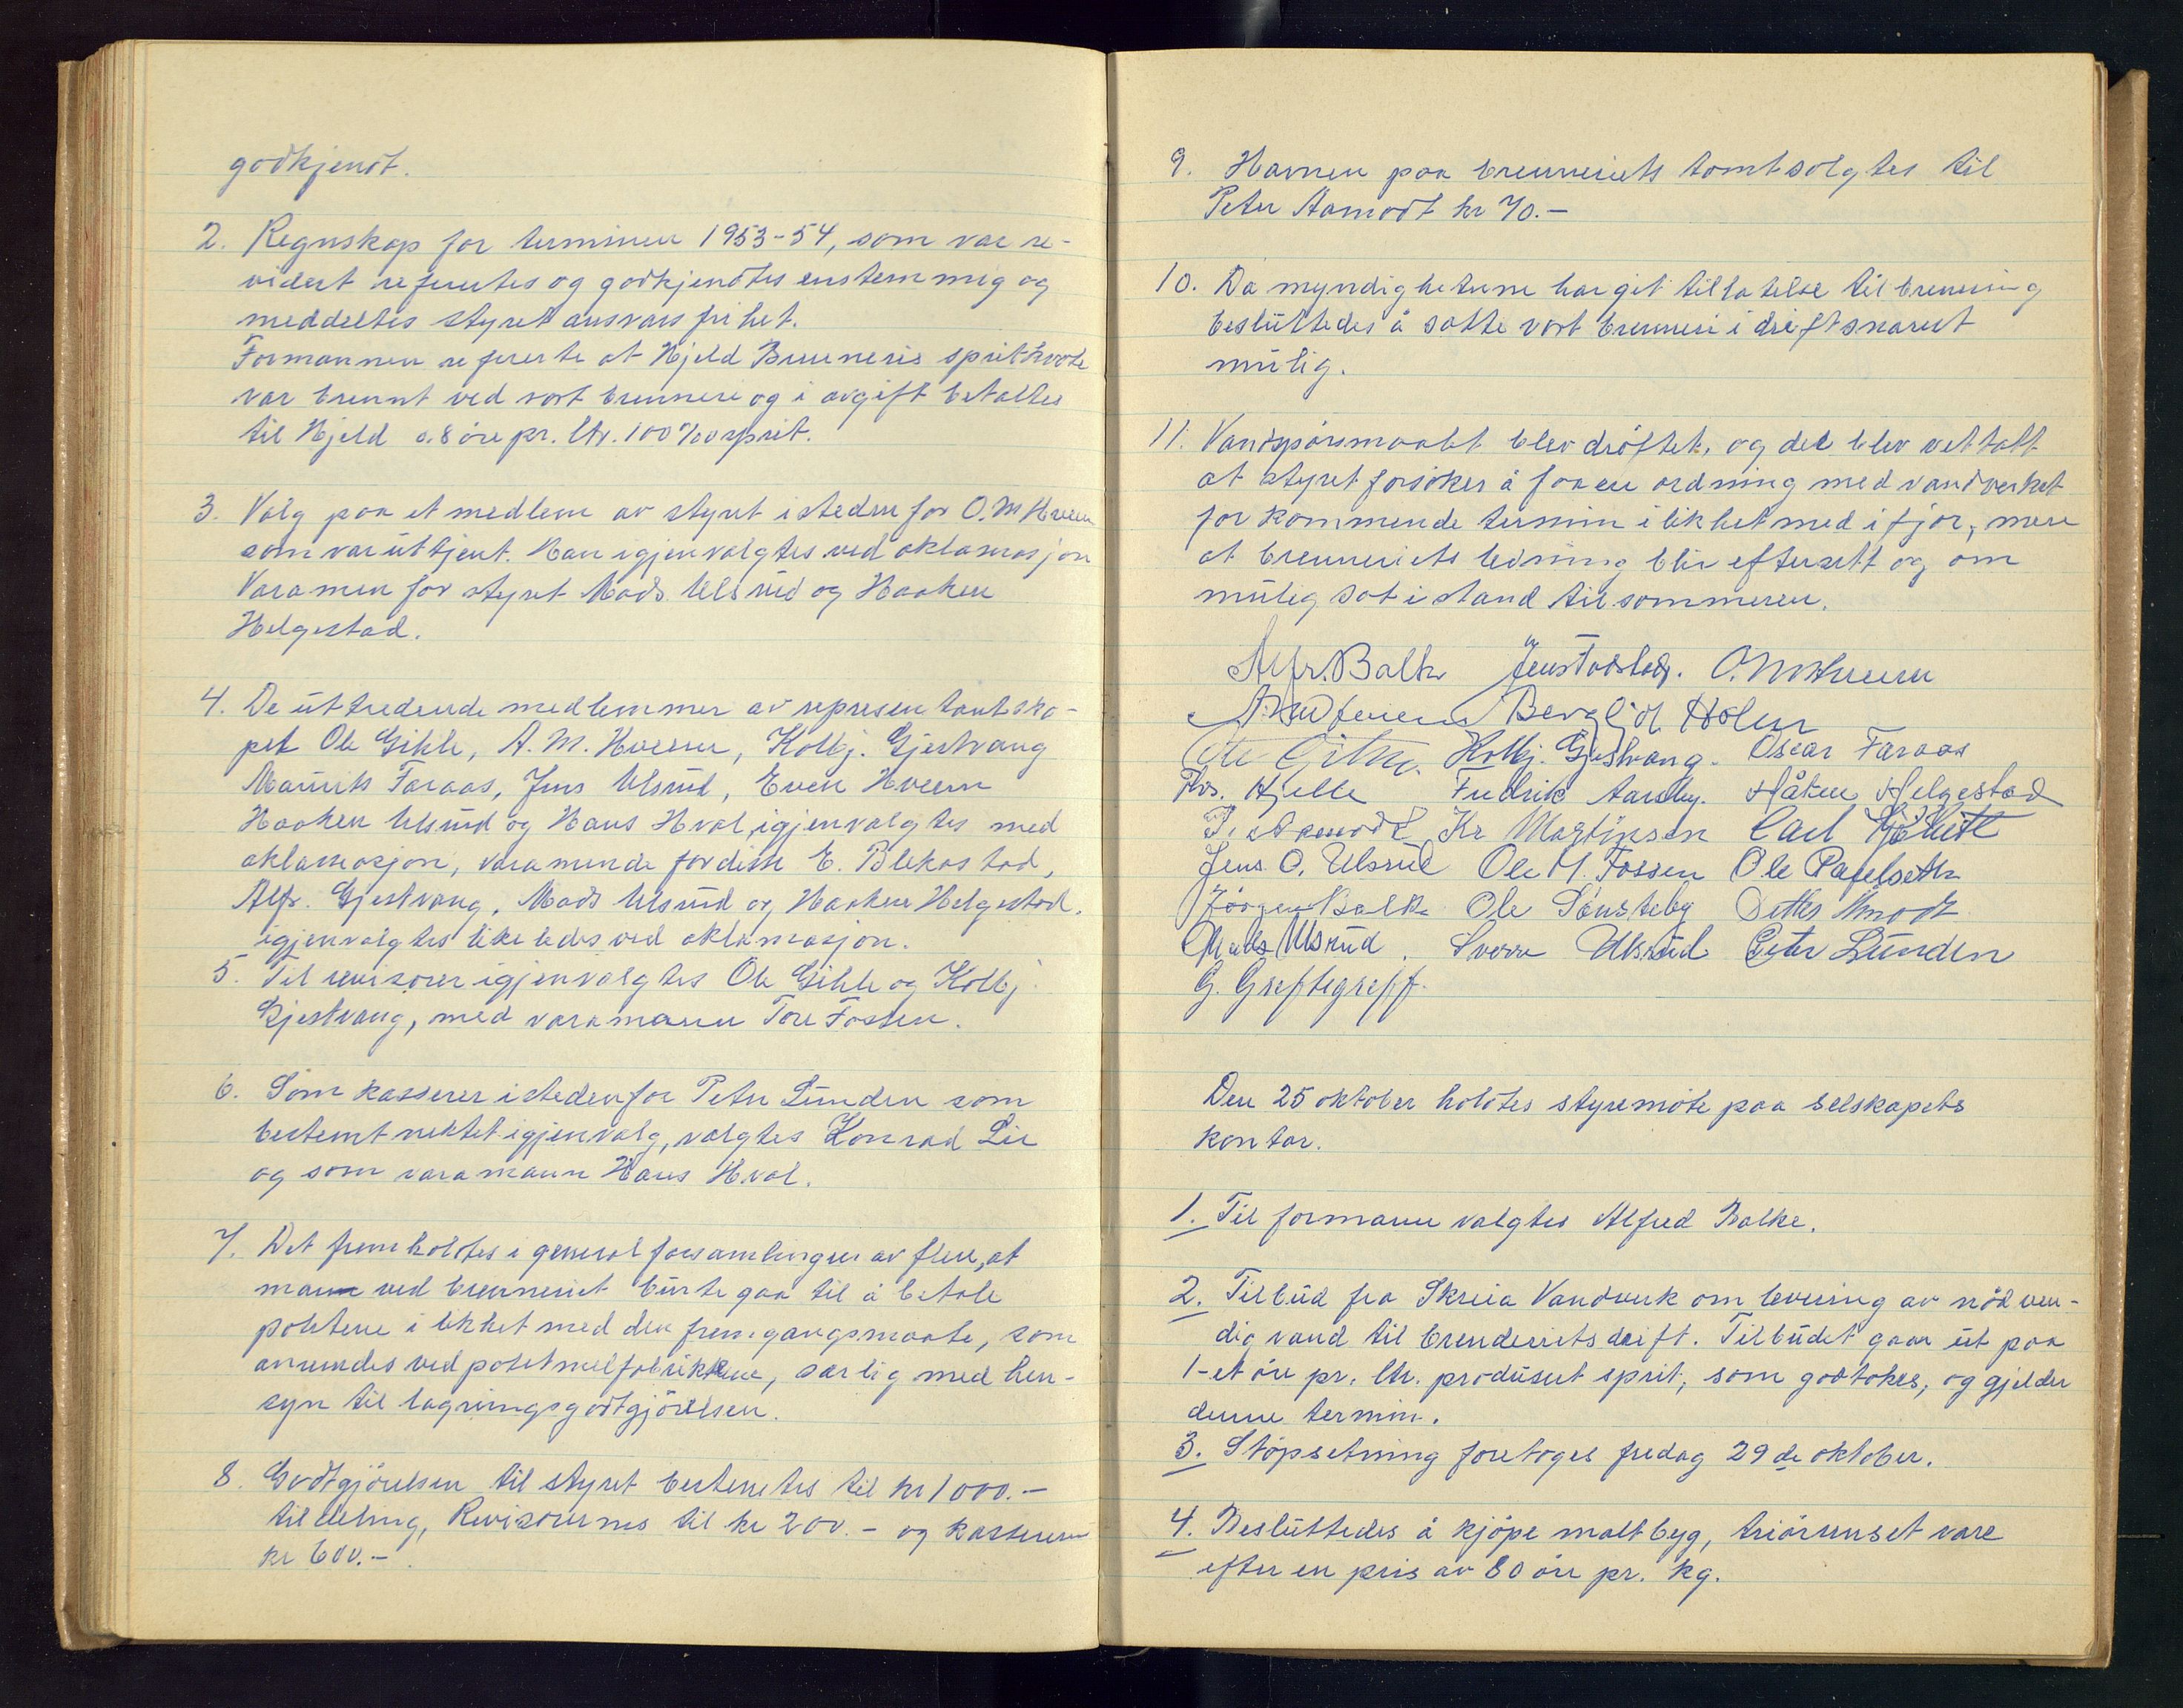 godkjendt.
2. Regnskap for terminen 1953-54, som var re-
vidert refertes og godkjendtes enstemmig og
meddeltes styret ansvarsfrihet.
Formannen refererte at Hjeld Brenneris spritkvote
var brennt ved vort brenneri og i avgift betaltes
til Hjeld a. 8 öre pr. ltr. 100% sprit.
3. Valg paa et medlem av styret isteden for O. M Hveem
som var uttjent. Han igjenvalgtes ved aklamasjon
Varamen for styret Mads Ulsrud og Haaken
Helgestad.
4. De uttredende medlemmer av representantska-
pet Ole Gihle, A. M. Hveem, Kolbj. Gjestvang
Mauritz Faraas, Jens Ulsrud, Even Hveem
Haaken Ulsrud og Hans Hval, igjenvalgtes med
aklamasjon, varamende for disse E. Blekastad,
Alfr. Gjestvang, Mads Ulsrud og Haaken Helgestad.
igjenvalgtes likeledes ved aklamasjon.
5. Til revisorer igjenvalgtes Ole Gihle og Kolbj.
Gjestvang, med varamann Tore Fossen.
6. Som kasserer istedenfor Peter Lunden som
bestemt nektet igjenvalg, valgtes Konrad Lie
og som varamann Hans Hval.
7. Det fremholdtes i generalforsamlingen av flere, at
man ved brenneriet burte gaa til å betale
potetene i likhet med den fremgangsmaate, som
anvendes ved potetmelfabrikkene, særlig med hen-
syn til lagringsgodtgjörelsen.
8. Godtgjörelsen til styret bestemtes til kr 1000.-
til deling, Revisorernes til kr 200.- og kassereren
kr 600.-
9. Havnen paa brenneriets tomt solgtes til
Peter Aamodt kr 70.-
10. Da myndighetene har git tillatelse til brenning
besluttedes å sætte vort brenneri i drift snarest
mulig.
11. Vandspörsmaalet blev dröftet, og det blev vettatt
at styret forsöker å faa en ordning med vandverket
for kommende termin i likhet med i fjor, mere
at brenneriets ledning blir eftersett og om
mulig sat i stand til sommeren.
Alfr. Balke Jens Todstad. O. M Hveem
Bergljot Holm
Ole Gihle. Kolbj. Gjestvang. Oscar Faraas
Ths. Hjelle Fredrik Aarnby. Håken Helgestad
P. Aamodt Kr Martinsen Carl
Jens O. Ulsrud Ole M. Fossen Ole Paulseth
Jörgen Balke Ole Sönsteby Ditlev Åmodt
Mads Ulsrud. Sverre Ulsrud Peter Lunden
G. Greftegreff.
Den 25 oktober holdtes styremöte paa selskapets
kontor.
1. Til formann valgtes Alfred Balke.
2. Tilbud fra Skreia Vandverk om levering av nödven-
dig vand til brenderiets drift. Tilbudet gaar ut paa
1-et öre pr. ltr. produsert sprit, som godtokes, og gjelder
denne termin.
3. Stöpsetning foretoges fredag 29 de oktober.
4. Besluttedes å kjöpe maltbyg, triörenset vare
efter en pris av 80 öre pr. kg.